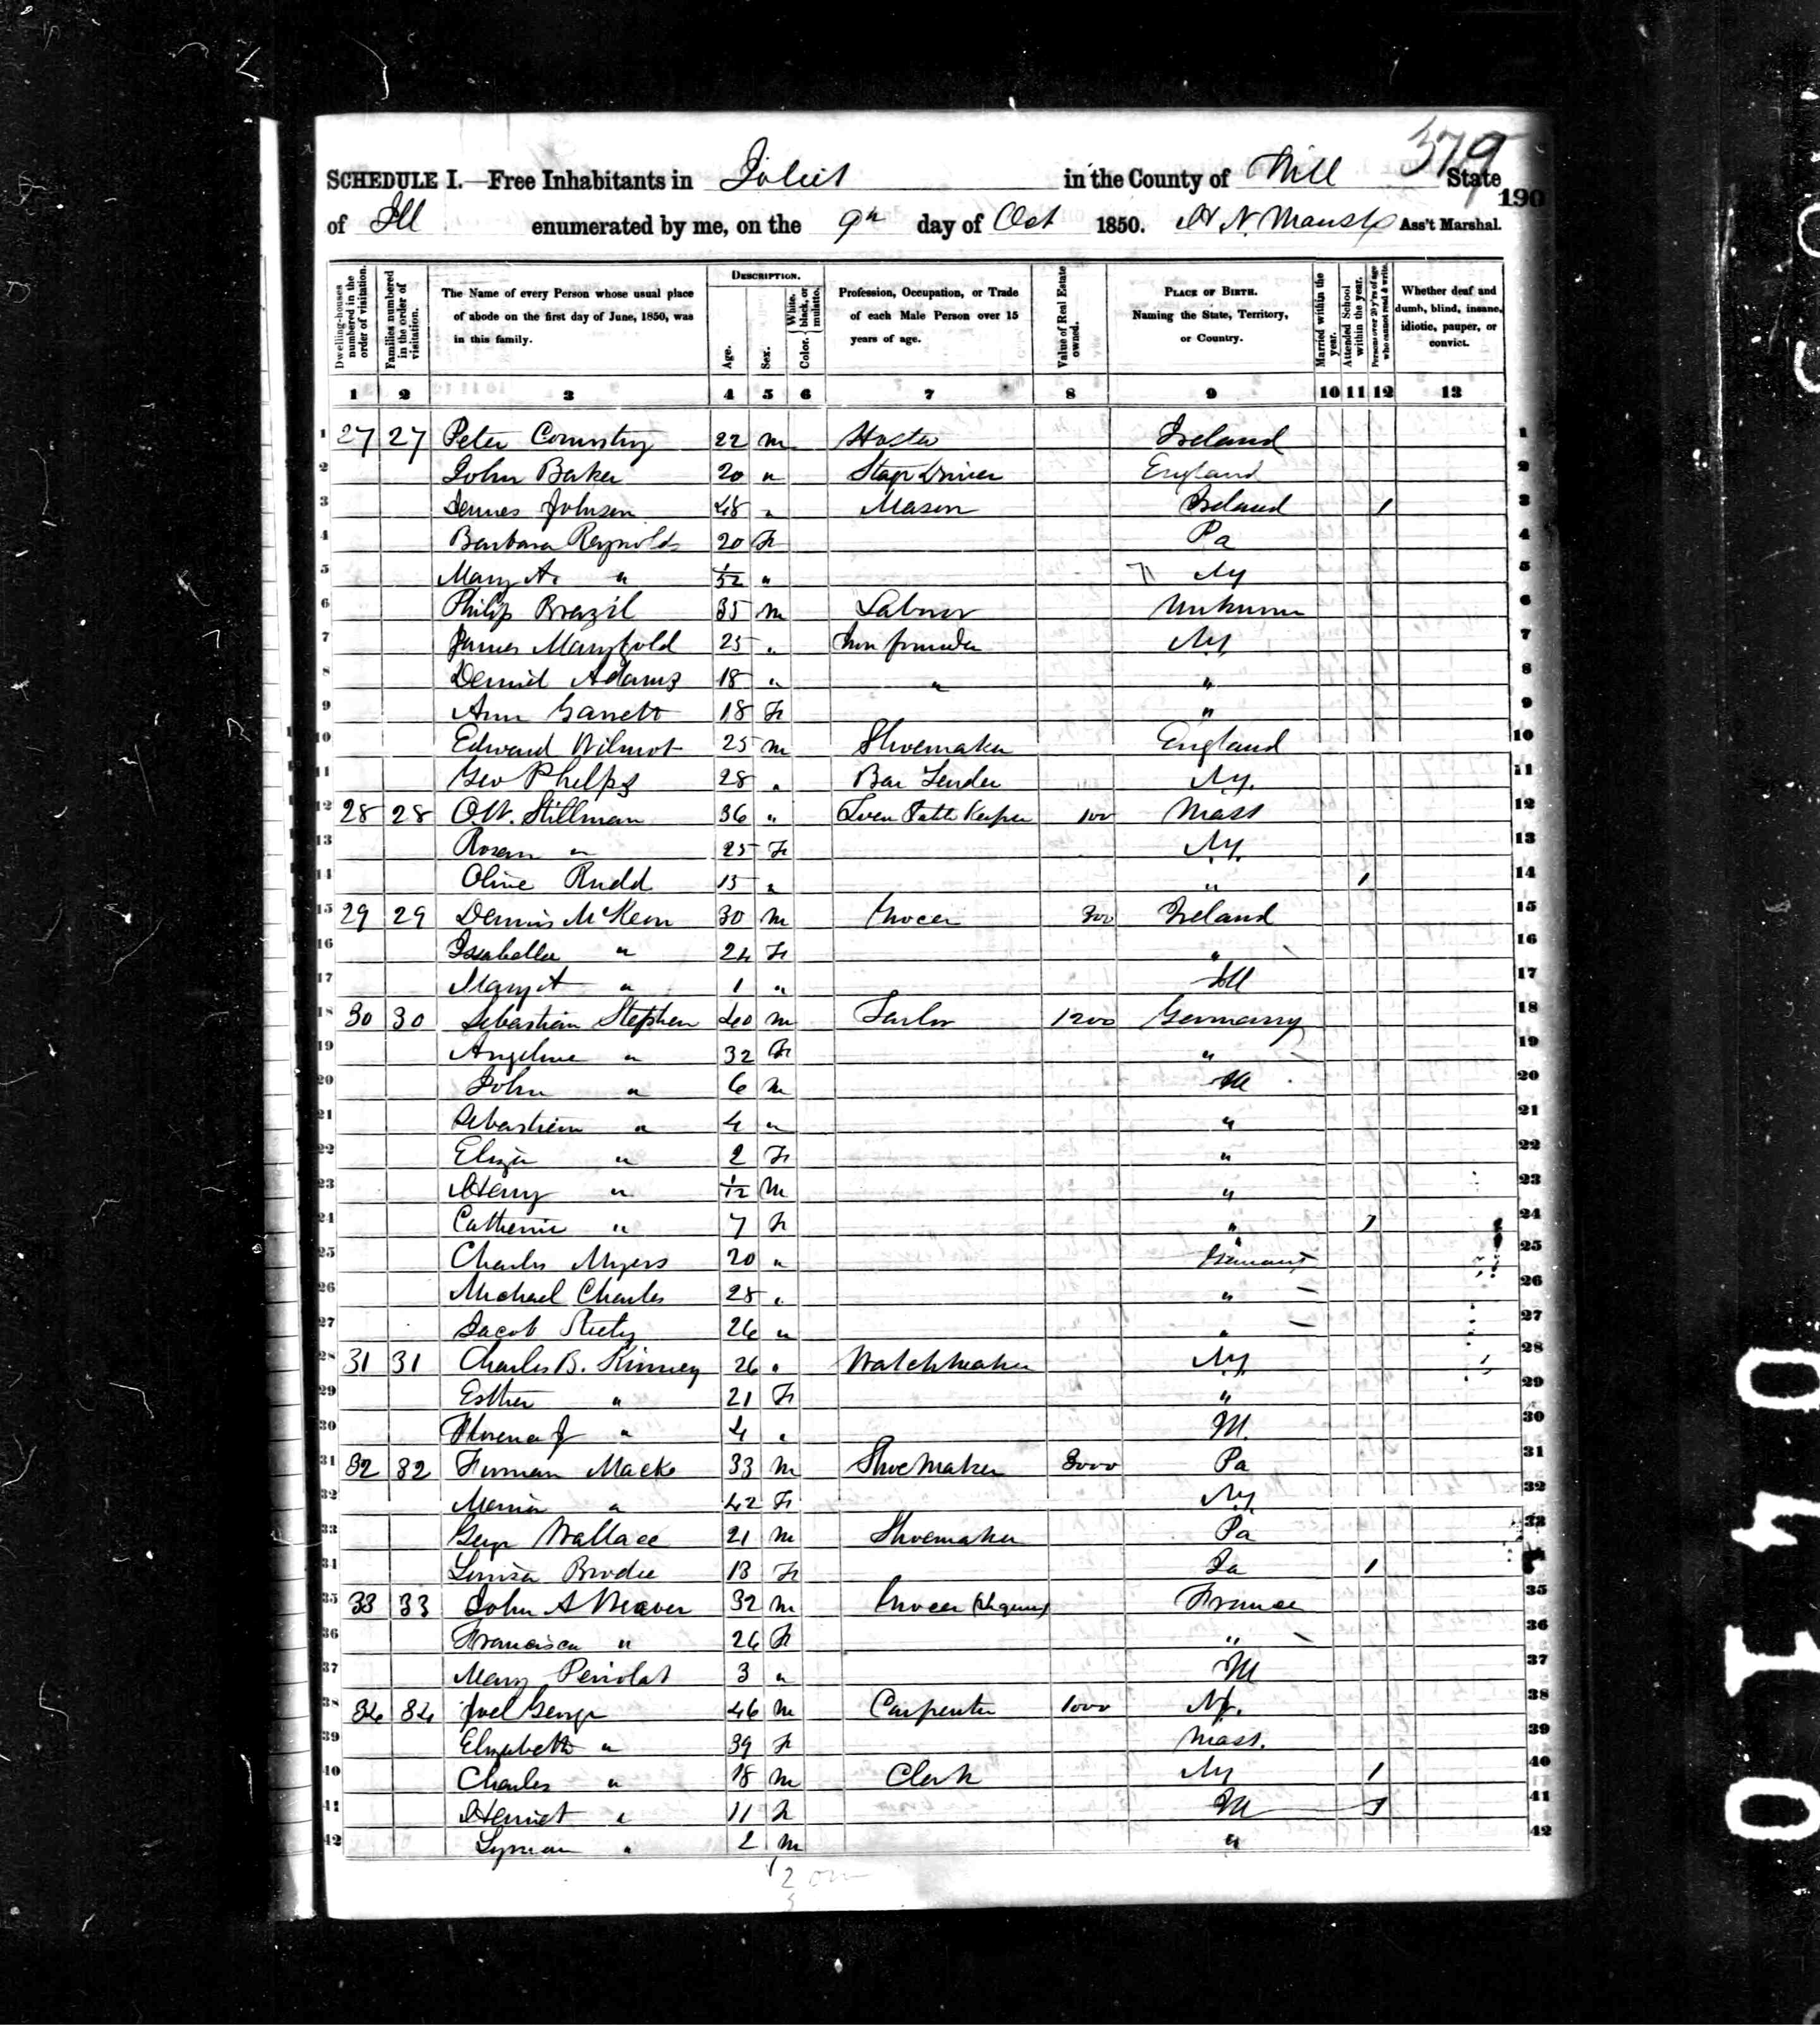 379
SCHEDULE I.—Free Inhabitants in Joliet in the County of Will State
190
of Ill enumerated by me, on the 9th day of Oct 1850. Ass't Marshal.
Dwelling-houses numbered in the order of visitation.
Families numbered in the order of visitation.
The Name of every Person whose usual place of abode on the first day of June, 1850, was in this family.
DESCRIPTION.
Age.
Sex.
Color. White, black, or mulatto.
Profession, Occupation, or Trade of each Male Person over 15 years of age.
Value of Real Estate owned.
PLACE OF BIRTH. Naming the State, Territory, or Country.
Married within the year.
Attended School within the year.
Persons over 20 y'rs of age who cannot read & write.
Whether deaf and dumb, blind, insane, idiotic, pauper, or convict.
1 2 3 4 5 6 7 8 9 10 11 12 13
1 27 27 Peter 22 m Ireland 1
2 John Baker 20 " Stage Driver England 2
3 Johnson 48 " Mason Ireland 1 3
4 Barbara Reynolds 20 F Pa 4
5 Mary A. " 1/52 " NY 5
6 Philip Brazil 35 m Labuor 6
7 James Marygold 25 " Iron founder NY 7
8 Adams 18 " " " 8
9 Ann Garrett 18 F " 9
10 Edward Wilmot 25 m Shoemaker England 10
11 Geo Phelps 28 " Bar Tender N.Y. 11
12 28 28 O.W. Stillman 36 " Keeper 100 Mass 12
13 " 25 F N.Y. 13
14 Olive Rudd 15 " " 1 14
15 29 29 Dennis McKeon 30 m Grocer 300 Ireland 15
16 Isabella " 24 F " 16
17 Mary A " 1 " Ill 17
18 30 30 Sebastian Stephen 40 m 1200 Germany 18
19 Angeline " 32 F " 19
20 John " 6 m Ill 20
21 Sebastian " 4 " " 21
22 Eliza " 2 F " 22
23 Henry " 1/12 m " 23
24 Catherine " 7 F " 1 24
25 Charles Myers 20 " Germany 25
26 Michael Charles 28 " " 26
27 Jacob 26 " " 27
28 31 31 Charles B. Kinney 26 " Watchmaker N.Y. 28
29 Esther " 21 F " 29
30 " 4 " Ill. 30
31 32 32 Furman Mack 33 m Shoe Maker 3000 Pa 31
32 Maria " 42 F N.Y. 32
33 Wallace 21 m Shoemaker Pa 33
34 Louisa Brodie 13 F 1
35 33 33 John A 32 m Grocer France 35
36 Francisca " 26 F " 36
37 Mary 3 " Ill 37
38 34 34 Joel George 46 m Carpenter 1000 38
39 Elizabeth " 39 F Mass. 39
40 Charles " 18 m Clerk NY 1 40
41 Harriet " 11 F Ill 1 41
42 Lyman " 2 m " 42
0410